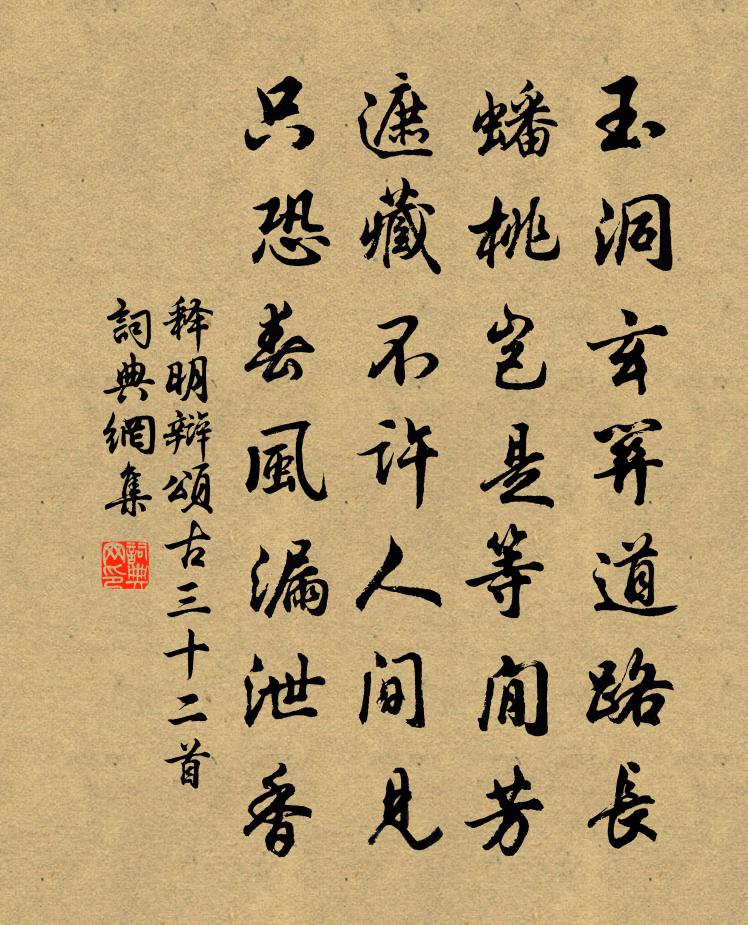 玉洞玄關道路長
蟠桃豈是等閒芳
遮藏不許人間見
只恐春風漏泄香
释明辯頌古三十二首
詞典網集
詞典網印